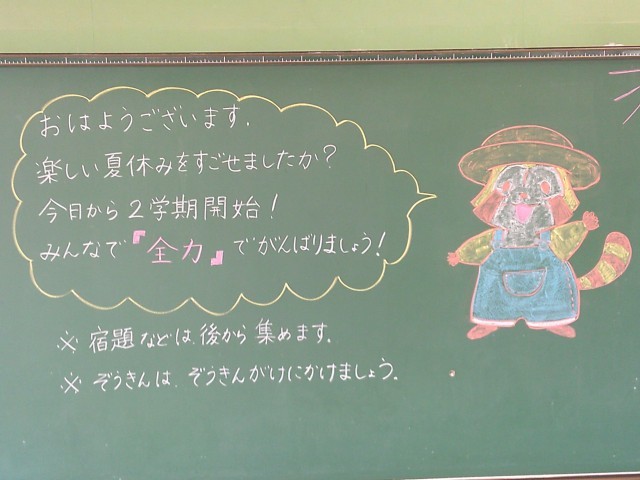 おはようございます.
楽しい夏休みをすごせましたか？
今日から2学期開始！
みんなで『全力』でがんばりましょう！
※ 宿題などは、後から集めます。
※ ぞうきんは、ぞうきんがけにかけましょう。